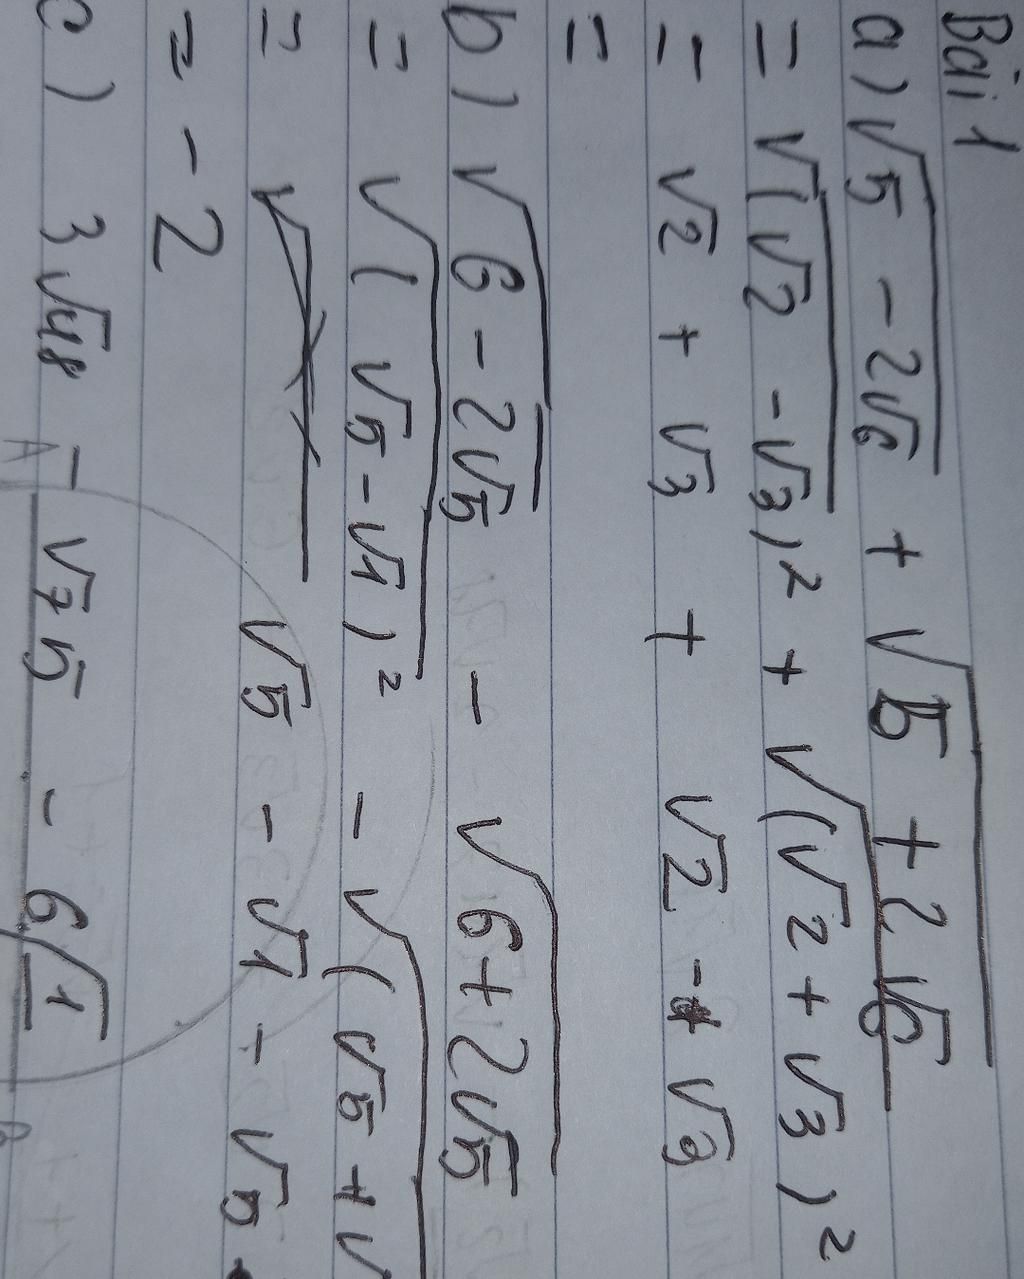 Bài 1
a) √(5 - 2√6) + √(5 + 2√6)
= √(√2 - √3)² + √(√2 + √3)²
= √2 + √3 + √2 - √3
=
b) √(6 - 2√5) - √(6 + 2√5)
= √(√5 - √1)² - √(√5 + √
= √5 - √1 - √5 -
= - 2
c) 3√48 - √75 - 6√1